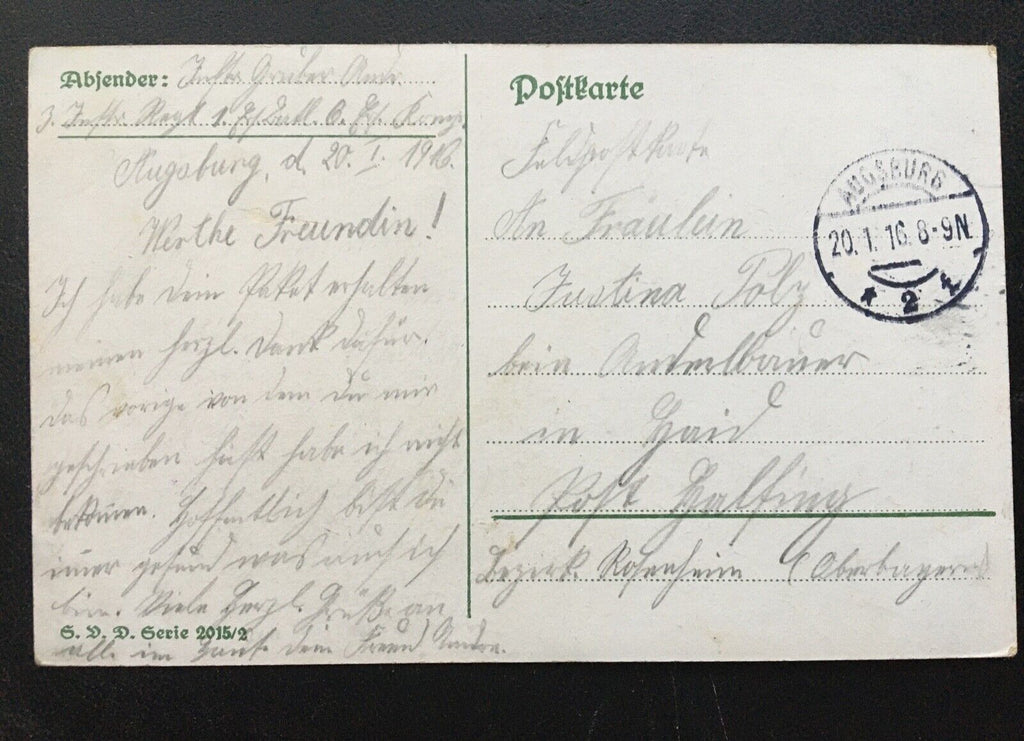 Absender: Inftr. Gruber Andr.
3. Inftr. Regt. 1. Ers. Batl. 6. Ers. Komp.
Augsburg, d. 20. I. 1916.
Werthe Freundin!
Ich habe dein Paket erhalten
meinen herzl. Dank dafür.
Das vorige von dem du mir
geschrieben hast habe ich nicht
bekommen. Hoffentlich bist du
immer gesund was auch ich
bin. Viele herzl. Grüße an
alle im Hause dein Freund Andre.
S. V. D. Serie 2015/2
Postkarte
Feldpostkarte
An Fräulein
Justina Polz
beim Andrelbauer
in Haid
Post Halfing
Bezirk Rosenheim (Oberbayern)
AUGSBURG
20.1.16.8-9N.
* 2 *